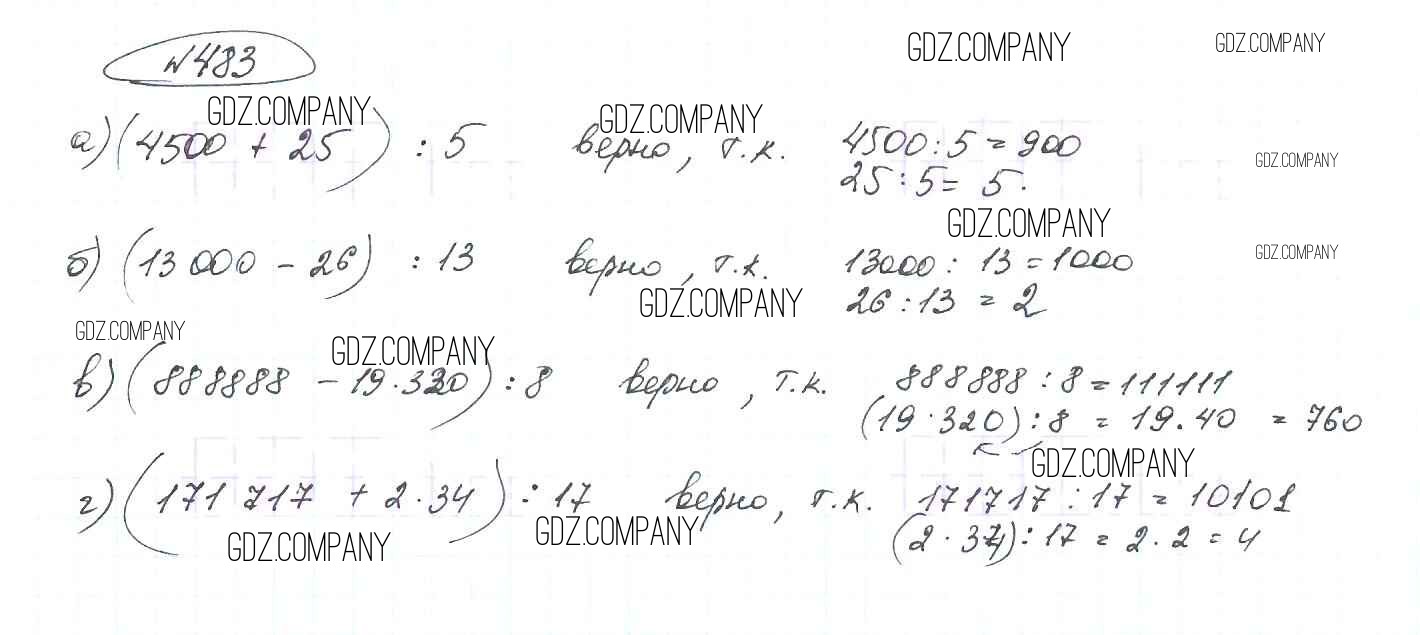 №483
GDZ.COMPANY GDZ.COMPANY
GDZ.COMPANY GDZ.COMPANY
а) (4500 + 25) : 5 верно, т.к. 4500 : 5 = 900
GDZ.COMPANY
25 : 5 = 5.
GDZ.COMPANY
б) (13 000 - 26) : 13 верно, т.к. 13000 : 13 = 1000
GDZ.COMPANY
GDZ.COMPANY 26 : 13 = 2
GDZ.COMPANY
GDZ.COMPANY
в) (888888 - 19·320) : 8 верно, т.к. 888888 : 8 = 111111
(19·320) : 8 = 19.40 = 760
GDZ.COMPANY
г) (171 717 + 2·34) : 17 верно, т.к. 171717 : 17 = 10101
GDZ.COMPANY GDZ.COMPANY
(2·34) : 17 = 2.2 = 4